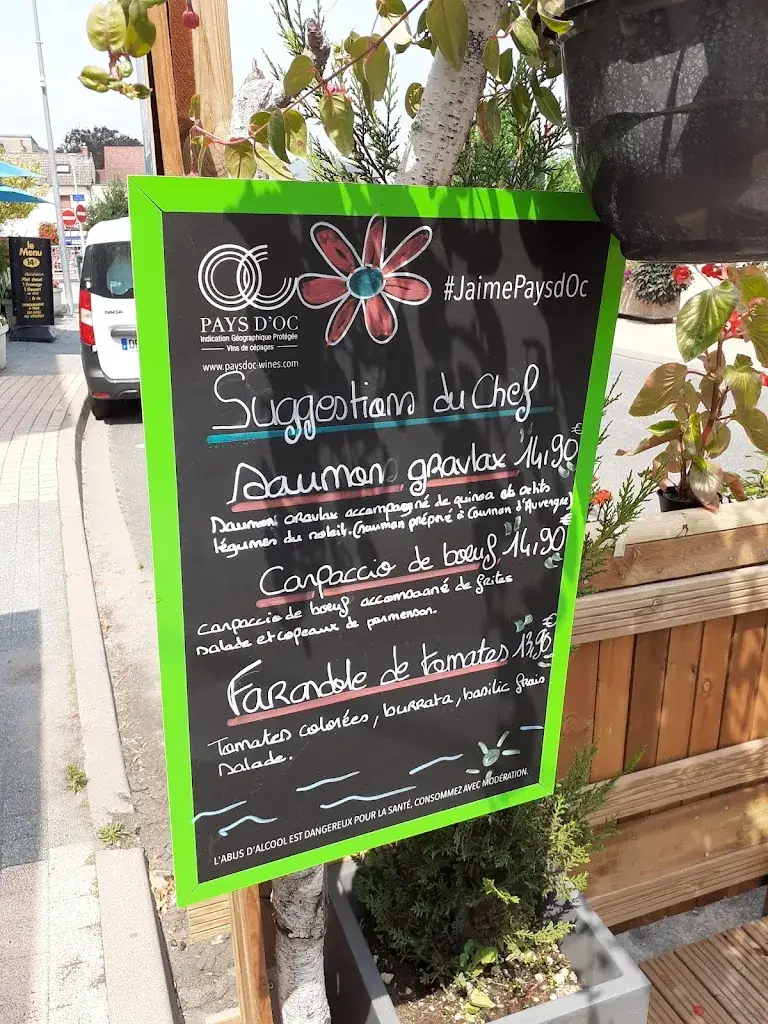 PAYS D'OC
Indication Géographique Protégée
Vins de cépages
www.paysdoc-wines.com
#JaimePaysdOc
Suggestions du Chef
Saumon gravlax 14,90€
Saumon gravlax accompagné de quinoa et petits
légumes du soleil. (saumon préparé à Cournon d'Auvergne)
Carpaccio de boeuf 14,90€
Carpaccio de boeuf accompagné de frites
salade et copeaux de parmesan.
Farandole de tomates 13,95€
Tomates colorées, burrata, basilic frais
salade.
L'ABUS D'ALCOOL EST DANGEREUX POUR LA SANTÉ, CONSOMMEZ AVEC MODÉRATION.
le
Menu
14
Plat chaud
1 Fromage
1 Dessert
DACIA